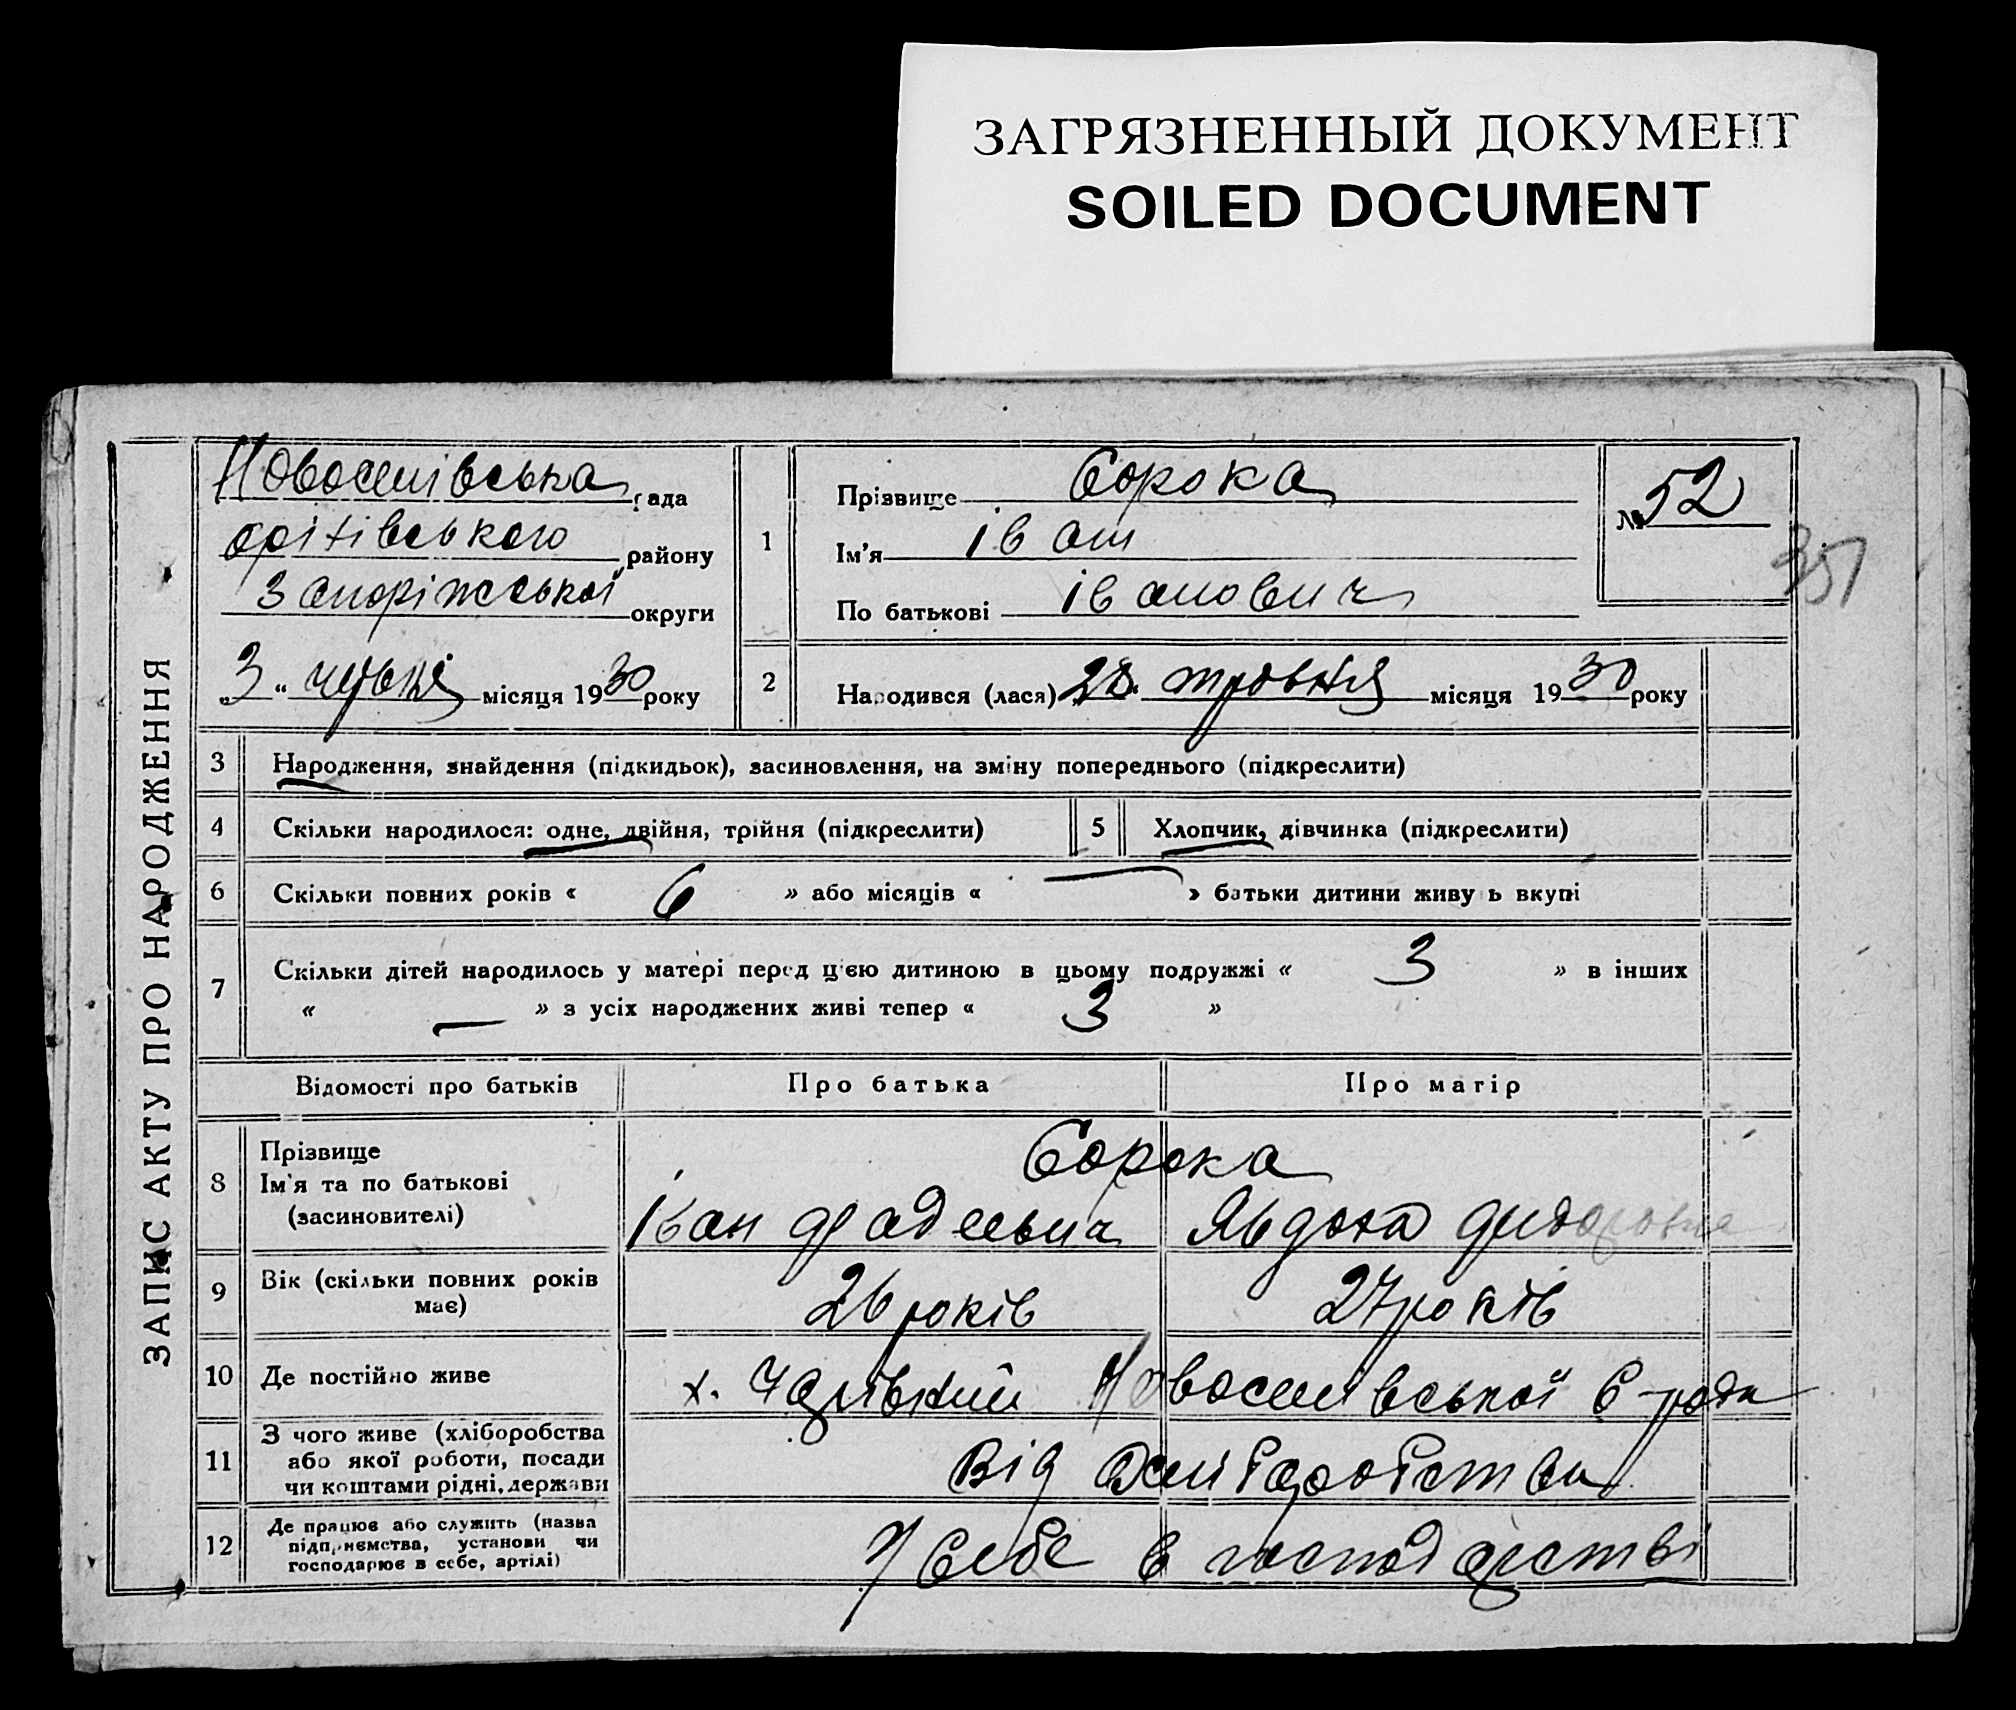 ЗАГРЯЗНЕННЫЙ ДОКУМЕНТ
SOILED DOCUMENT
ЗАПИС АКТУ ПРО НАРОДЖЕННЯ
Новоселівська рада
оріхівського району
Запоріжської округи
„3“ червня місяця 1930 року
1
Прізвище Сорока
Ім'я Іван
По батькові Іванович
№ 52
351
2
Народився (лася) 28 травня місяця 1930 року
3 Народження, знайдення (підкидьок), засиновлення, на зміну попереднього (підкреслити)
4 Скільки народилося: одне, двійня, трійня (підкреслити)
5 Хлопчик, дівчинка (підкреслити)
6 Скільки повних років « 6 » або місяців « — » батьки дитини живуть вкупі
7 Скільки дітей народилось у матері перед цією дитиною в цьому подружжі « 3 » в інших
« — » з усіх народжених живі тепер « 3 »
Відомості про батьків Про батька Про матір
8 Прізвище
Ім'я та по батькові
(засиновителі)
Сорока
Іван Фадеевич Явдоха
9 Вік (скільки повних років
має)
26 років 27 років
10 Де постійно живе
х. Новоселівської С-ради
11 З чого живе (хліборобства
або якої роботи, посади
чи коштами рідні, держави
Від хліборобства
12 Де працює або служить (назва
підприємства, установи чи
господарює в себе, артілі)
У себе в господарстві